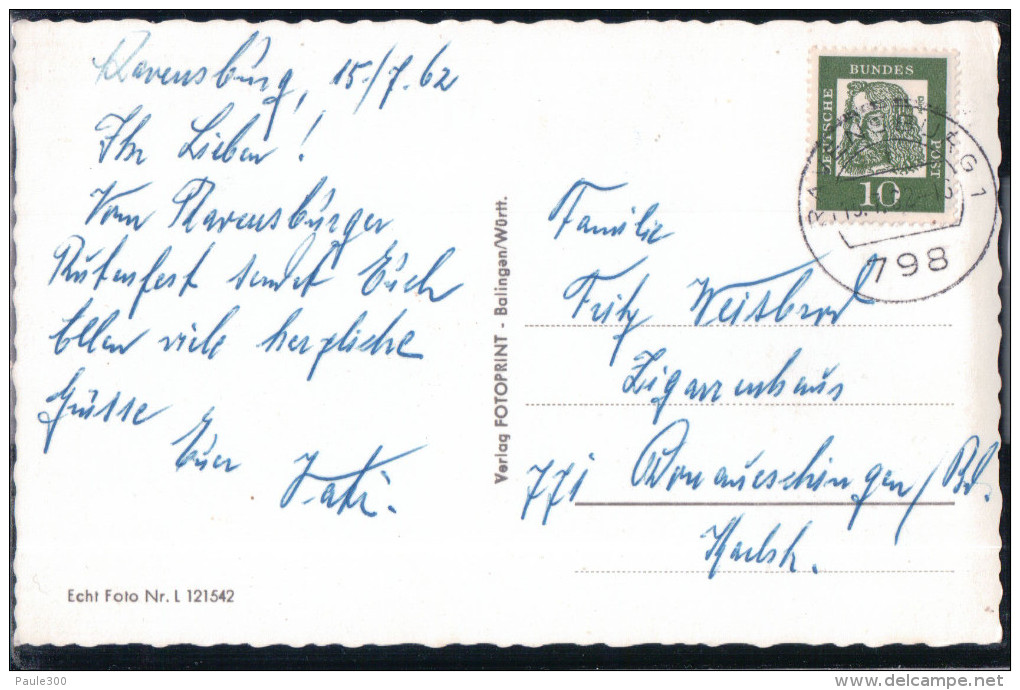 Ravensburg, 15./7.62
Ihr Lieben!
Vom Ravensburger
Rutenfest sendet Euch
Allen viele herzliche
Grüsse
Euer
Echt Foto Nr. L 121542
Verlag FOTOPRINT - Balingen/Württ.
DEUTSCHE
BUNDES
POST
10
798
Familie
Fritz Weisbrod
Zigarrenhaus
771 Donaueschingen/Bd.
Karlstr.
Paule300
delcampe.net